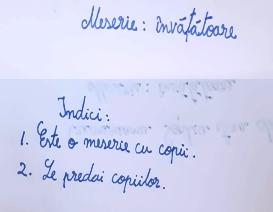 Meserie: învățătoare
Indici:
1. Este o meserie cu copii.
2. Le predai copiilor.